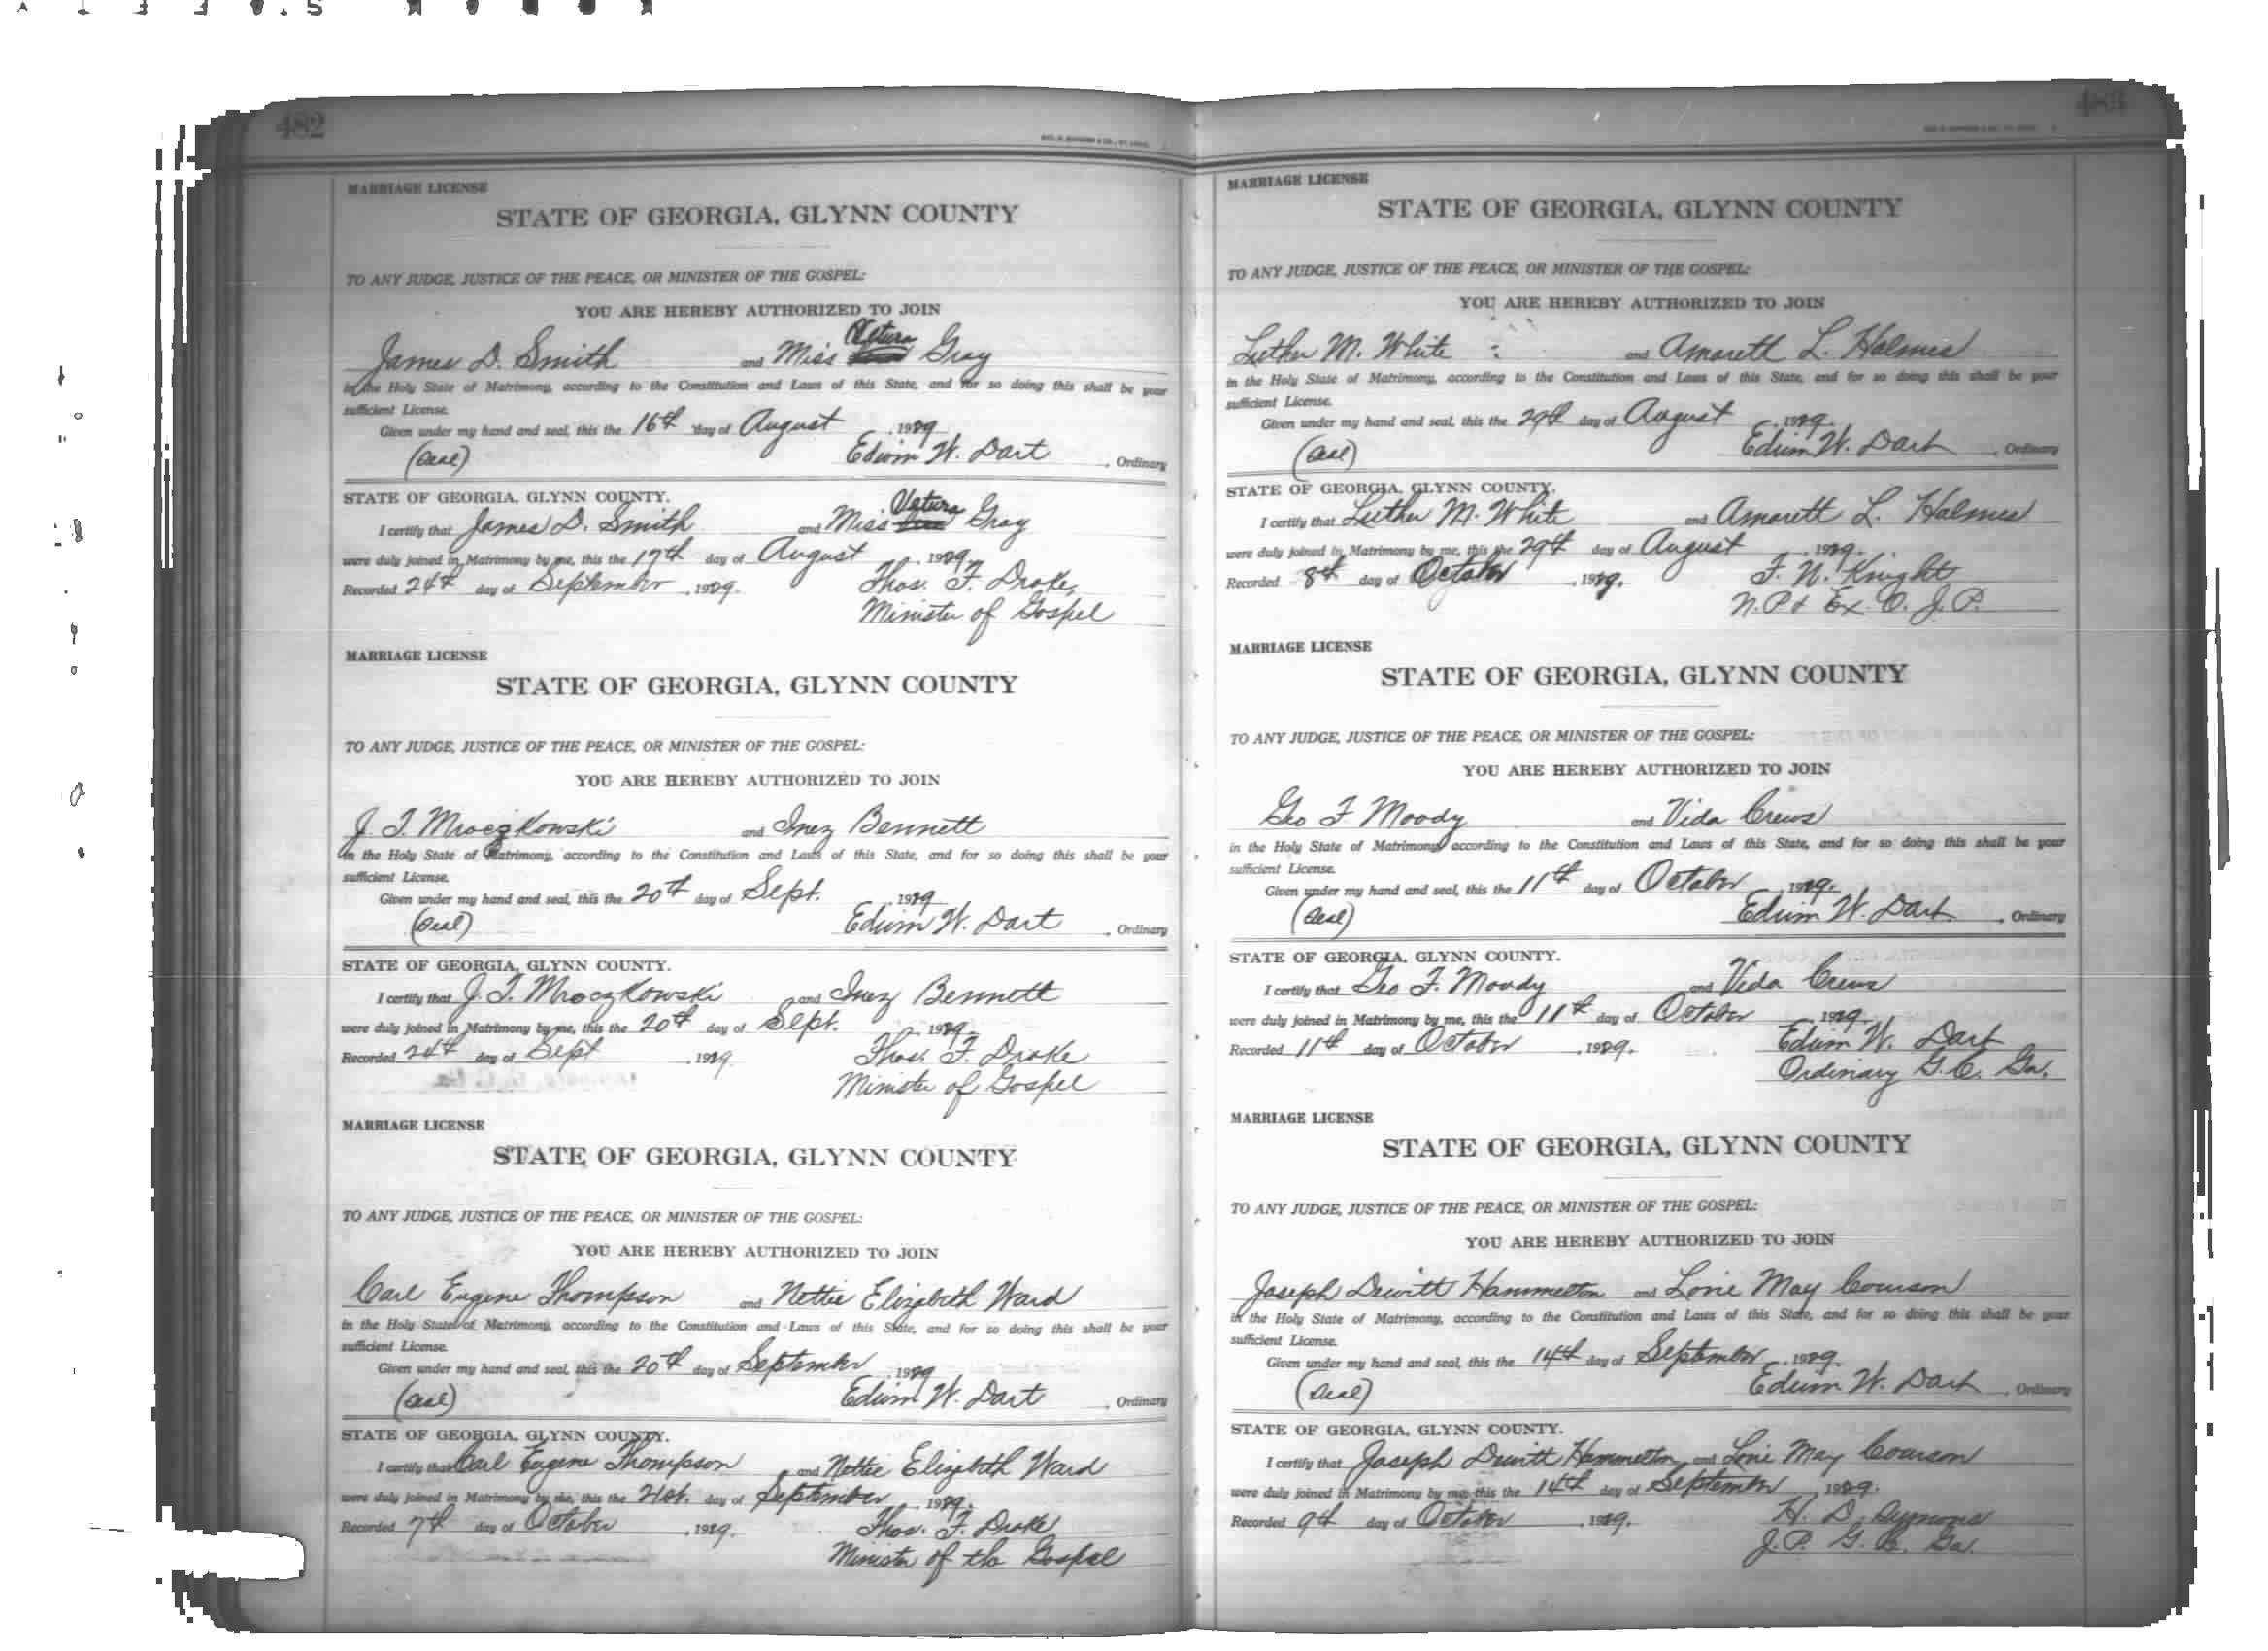 482
MARRIAGE LICENSE
STATE OF GEORGIA, GLYNN COUNTY
TO ANY JUDGE, JUSTICE OF THE PEACE, OR MINISTER OF THE GOSPEL:
YOU ARE HEREBY AUTHORIZED TO JOIN
James D. Smith and Miss Vetura Gray
in the Holy State of Matrimony, according to the Constitution and Laws of this State, and for so doing this shall be your
sufficient License.
Given under my hand and seal, this the 16th day of August, 1929
(Seal) Edwin W. Dart, Ordinary
STATE OF GEORGIA, GLYNN COUNTY.
I certify that James D. Smith and Miss Vetura Gray
were duly joined in Matrimony by me, this the 17th day of August, 1929.
Recorded 24th day of September, 1929. Thos. F. Drake,
Minister of Gospel
MARRIAGE LICENSE
STATE OF GEORGIA, GLYNN COUNTY
TO ANY JUDGE, JUSTICE OF THE PEACE, OR MINISTER OF THE GOSPEL:
YOU ARE HEREBY AUTHORIZED TO JOIN
J. T. Mroczkowski and Inez Bennett
in the Holy State of Matrimony, according to the Constitution and Laws of this State, and for so doing this shall be your
sufficient License.
Given under my hand and seal, this the 20th day of Sept., 1929
(Seal) Edwin W. Dart, Ordinary
STATE OF GEORGIA, GLYNN COUNTY.
I certify that J. T. Mroczkowski and Inez Bennett
were duly joined in Matrimony by me, this the 20th day of Sept., 1929.
Recorded 24th day of Sept, 1929. Thos. F. Drake
Minister of Gospel
MARRIAGE LICENSE
STATE OF GEORGIA, GLYNN COUNTY
TO ANY JUDGE, JUSTICE OF THE PEACE, OR MINISTER OF THE GOSPEL:
YOU ARE HEREBY AUTHORIZED TO JOIN
Carl Eugene Thompson and Nettie Elizabeth Ward
in the Holy State of Matrimony, according to the Constitution and Laws of this State, and for so doing this shall be your
sufficient License.
Given under my hand and seal, this the 20th day of September, 1929
(Seal) Edwin W. Dart, Ordinary
STATE OF GEORGIA, GLYNN COUNTY.
I certify that Carl Eugene Thompson and Nettie Elizabeth Ward
were duly joined in Matrimony by me, this the 21st. day of September, 1929.
Recorded 7th day of October, 1929. Thos. F. Drake
Minister of the Gospel
483
MARRIAGE LICENSE
STATE OF GEORGIA, GLYNN COUNTY
TO ANY JUDGE, JUSTICE OF THE PEACE, OR MINISTER OF THE GOSPEL:
YOU ARE HEREBY AUTHORIZED TO JOIN
Luther M. White and Amarett L. Holmes
in the Holy State of Matrimony, according to the Constitution and Laws of this State, and for so doing this shall be your
sufficient License.
Given under my hand and seal, this the 29th day of August, 1929.
(Seal) Edwin W. Dart, Ordinary
STATE OF GEORGIA, GLYNN COUNTY.
I certify that Luther M. White and Amarett L. Holmes
were duly joined in Matrimony by me, this the 29th day of August, 1929.
Recorded 8th day of October, 1929. F. N. Knight
N.P & Ex. O. J. P.
MARRIAGE LICENSE
STATE OF GEORGIA, GLYNN COUNTY
TO ANY JUDGE, JUSTICE OF THE PEACE, OR MINISTER OF THE GOSPEL:
YOU ARE HEREBY AUTHORIZED TO JOIN
Geo F. Moody and Vida Crews
in the Holy State of Matrimony, according to the Constitution and Laws of this State, and for so doing this shall be your
sufficient License.
Given under my hand and seal, this the 11th day of October, 1929.
(Seal) Edwin W. Dart, Ordinary
STATE OF GEORGIA, GLYNN COUNTY.
I certify that Geo F. Moody and Vida Crews
were duly joined in Matrimony by me, this the 11th day of October, 1929.
Recorded 11th day of October, 1929. Edwin W. Dart
Ordinary G.C. Ga.
MARRIAGE LICENSE
STATE OF GEORGIA, GLYNN COUNTY
TO ANY JUDGE, JUSTICE OF THE PEACE, OR MINISTER OF THE GOSPEL:
YOU ARE HEREBY AUTHORIZED TO JOIN
Joseph Dewitt Hammelton and Lorie May Courson
in the Holy State of Matrimony, according to the Constitution and Laws of this State, and for so doing this shall be your
sufficient License.
Given under my hand and seal, this the 14th day of September, 1929.
(Seal) Edwin W. Dart, Ordinary
STATE OF GEORGIA, GLYNN COUNTY.
I certify that Joseph Dewitt Hammelton and Lorie May Courson
were duly joined in Matrimony by me, this the 14th day of September, 1929.
Recorded 9th day of October, 1929. H. D. Symons
J.P. G. C. Ga.